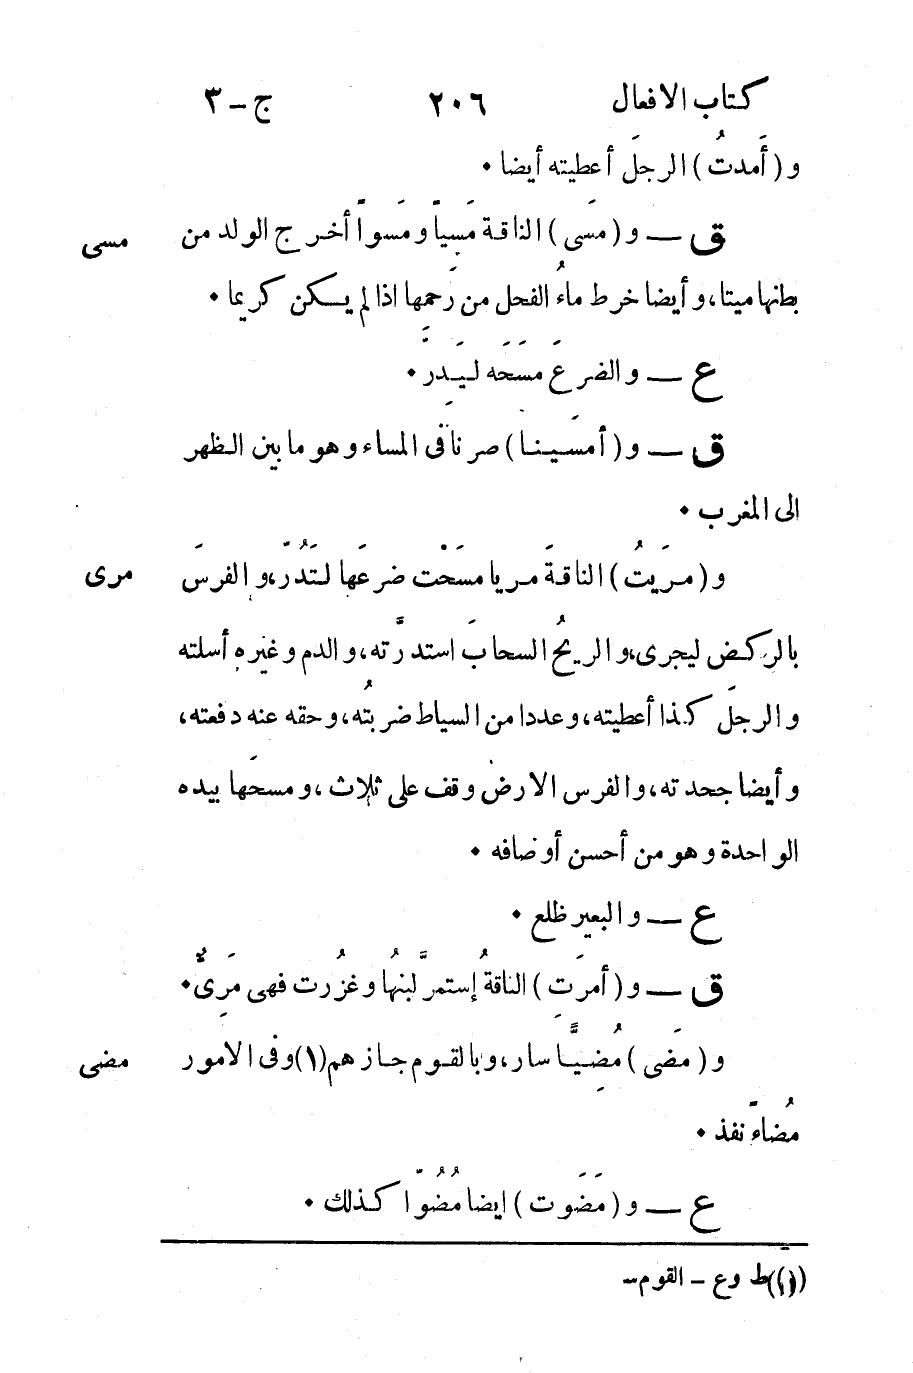 كتاب الافعال ٢٠٦ ج - ٣
و ( أَمدتُ ) الرجلَ أعطيته أيضا •
ق — و ( مَسَى ) الناقة مَسيًا ومَسوًا أخرج الولد من مسى
بطنها ميتا، وأيضا خرط ماءُ الفحل من رَحِمها اذا لم يكن كريما •
ع — والضرعَ مَسَحَه لِيَدِرَّ •
ق — و ( أمسَينا ) صرنا فى المساء وهو ما بين الظهر
الى المغرب •
و ( مَريتُ ) الناقةَ مريا مسَحْت ضرعَها لتَدُرّ، والفرسَ مرى
بالركض ليجرى، والريحُ السحابَ استدرَّته، والدم وغيره أسلته
والرجلَ كذا أعطيته، وعددا من السياط ضربتُه، وحقه عنه دفعته،
وأيضا جحدته، والفرس الارض وقف على ثلاث ، ومسحَها بيده
الواحدة وهو من أحسن أوصافه •
ع — والبعير ظلع •
ق — و ( أمرَت ) الناقةُ إستمرَّ لبنُها وغزُرت فهى مَرِىٌّ •
و ( مضَى ) مُضِيًّا سار، وبالقوم جازهم (١) وفى الامور مضى
مُضاءً نفذ •
ع — و ( مَضَوت ) ايضا مُضُوّا كذلك •
(١) ط وع - القوم -